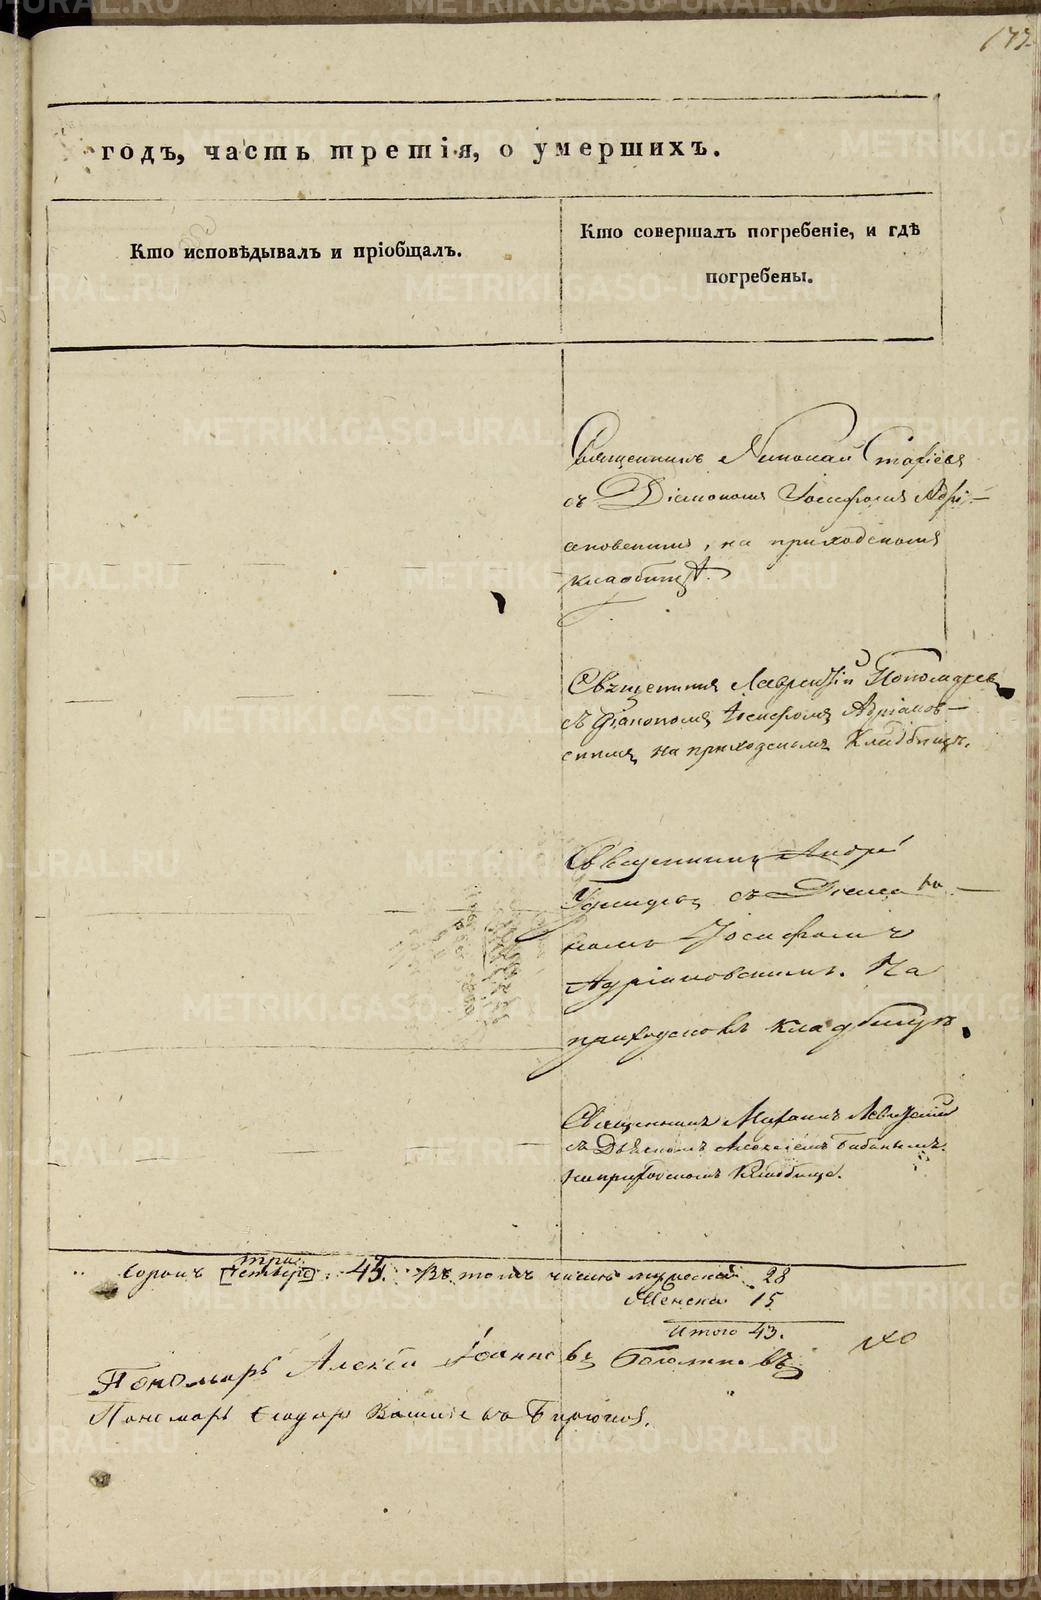 177
годъ, часть третія, о умершихъ.
Кто исповѣдывалъ и пріобщалъ.
Кто совершалъ погребеніе, и гдѣ
погребены.
Священникъ Николай
съ Діакономъ Іосифомъ Адрі-
ановскимъ, на приходскомъ
кладбищѣ.
Священникъ Лаврентій Пономарев
съ Діакономъ Іосифомъ Адріанов-
скимъ на приходскомъ Кладбищѣ.
Священникъ Андрей
Удинцевъ съ Діако
номъ Іосифомъ
Адріановскимъ. На
приходскомъ кладбищѣ.
Священникъ Михаилъ Левитскій
съ Дьякономъ Алексіемъ Бабинымъ.
на приходскомъ Кладбище.
три
Сорокъ [четыре] 43. Въ томъ числѣ мужеска 28
Женска 15
Итого 43.
Пономарь Алексій Іоанновъ Боголиповъ
Пономарь Ѳеодоръ Бирюковъ.
METRIKI.GASO-URAL.RU